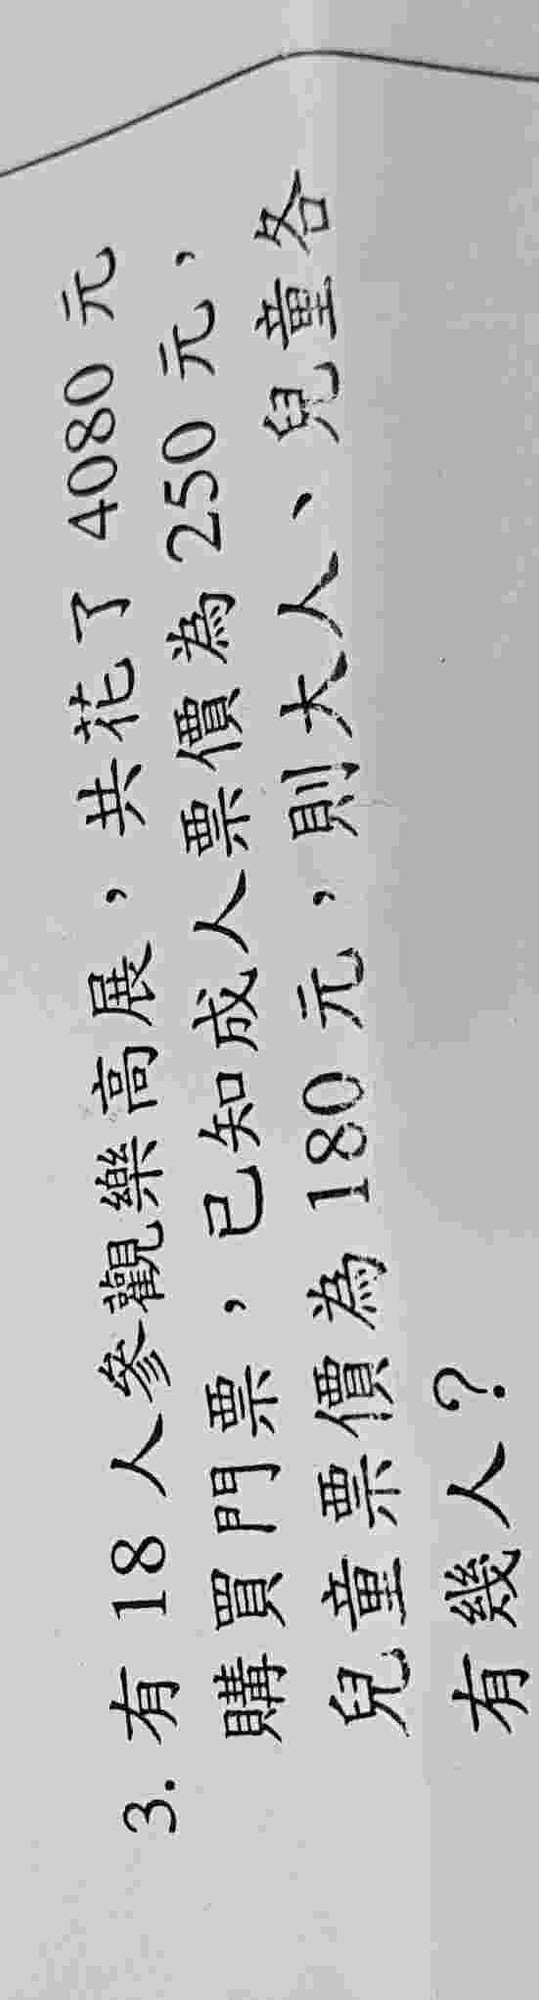 3. 有 18 人參觀樂高展，共花了 4080 元
購買門票，已知成人票價為 250 元，
兒童票價為 180 元，則大人、兒童各
有幾人？